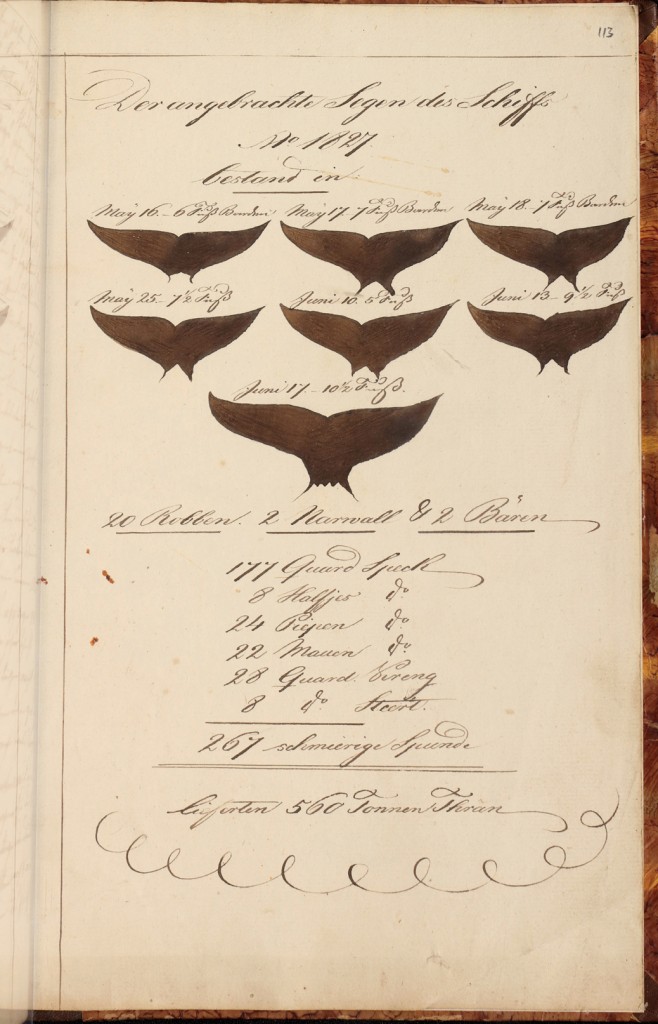 113
Der angebrachte Segen des Schiffs
Ao 1827.
bestand in
May 16 - 6 Fuß Barden
May 17. 7 Fuß Barden
May 18. 7 Fuß Barden
May 25 - 7 1/2 Fuß
Juni 10. 5 Fuß
Juni 13 - 9 1/2 Fuß
Juni 17 - 10 1/2 Fuß.
20 Robben. 2 Narwall & 2 Bären
177 Quard Speck
8 Halfjes do
24 Piepen do
22 Mauen do
28 Quard. Kreng
8 do Steert.
267 schmierige Spunde
lieferten 560 Tonnen Thran